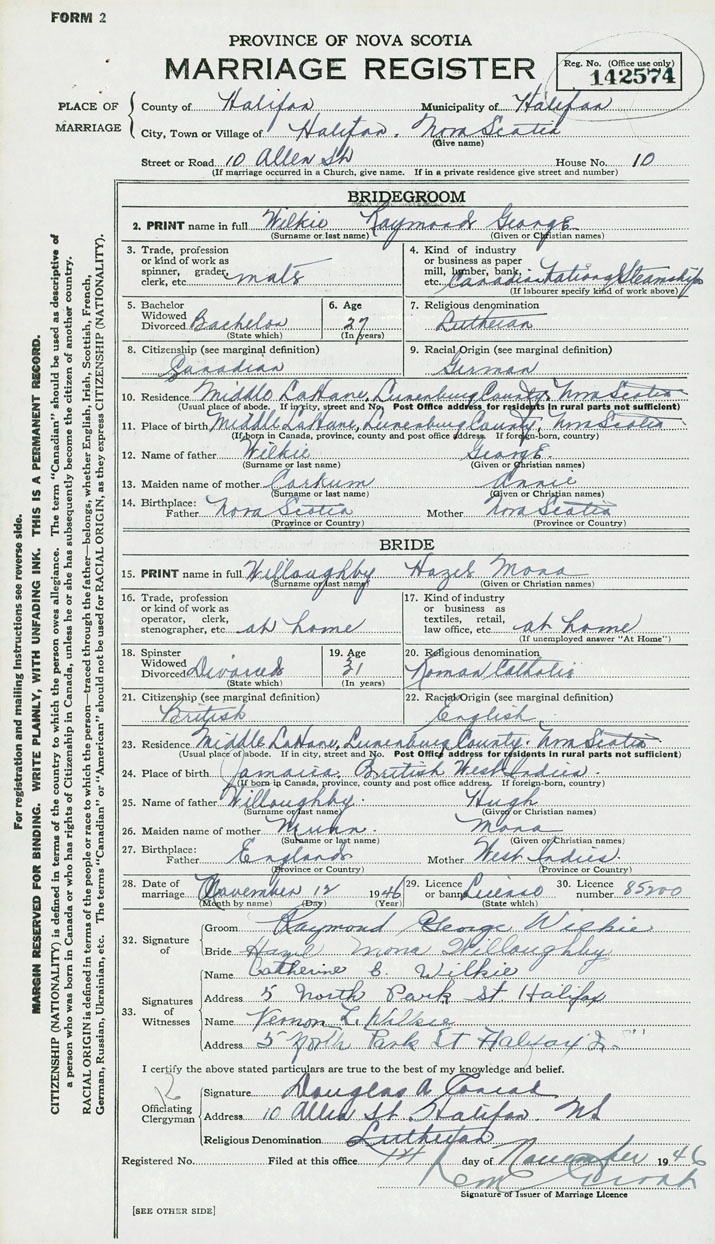 FORM 2
PROVINCE OF NOVA SCOTIA
MARRIAGE REGISTER
Reg. No. (Office use only)
142574
PLACE OF MARRIAGE
County of Halifax Municipality of Halifax
City, Town or Village of Halifax. Nova Scotia
(Give name)
Street or Road 10 Allen St House No. 10
(If marriage occurred in a Church, give name. If in a private residence give street and number)
BRIDEGROOM
2. PRINT name in full Wilkie Raymond George
(Surname or last name) (Given or Christian names)
3. Trade, profession or kind of work as spinner, grader, clerk, etc. mate
4. Kind of industry or business as paper mill, lumber, bank, etc. Canadian National Steamships
(If labourer specify kind of work above)
5. Bachelor Widowed Divorced Bachelor
(State which)
6. Age 27
(In years)
7. Religious denomination
Lutheran
8. Citizenship (see marginal definition)
Canadian
9. Racial Origin (see marginal definition)
German
10. Residence Middle LaHave, Lunenburg County, Nova Scotia
(Usual place of abode. If in city, street and No. Post Office address for residents in rural parts not sufficient)
11. Place of birth Middle LaHave, Lunenburg County, Nova Scotia
(If born in Canada, province, county and post office address. If foreign-born, country)
12. Name of father Wilkie George
(Surname or last name) (Given or Christian names)
13. Maiden name of mother Corkum Annie
(Surname or last name) (Given or Christian names)
14. Birthplace: Father Nova Scotia Mother Nova Scotia
(Province or Country) (Province or Country)
BRIDE
15. PRINT name in full Willoughby Hazel Mona
(Surname or last name) (Given or Christian names)
16. Trade, profession or kind of work as operator, clerk, stenographer, etc. at home
17. Kind of industry or business as textiles, retail, law office, etc. at home
(If unemployed answer "At Home")
18. Spinster Widowed Divorced Divorced
(State which)
19. Age 31
(In years)
20. Religious denomination
Roman Catholic
21. Citizenship (see marginal definition)
British
22. Racial Origin (see marginal definition)
English
23. Residence Middle LaHave, Lunenburg County. Nova Scotia
(Usual place of abode. If in city, street and No. Post Office address for residents in rural parts not sufficient)
24. Place of birth Jamaica, British West Indies.
(If born in Canada, province, county and post office address. If foreign-born, country)
25. Name of father Willoughby. Hugh
(Surname or last name) (Given or Christian names)
26. Maiden name of mother Munn. Mona
(Surname or last name) (Given or Christian names)
27. Birthplace: Father England Mother West Indies.
(Province or Country) (Province or Country)
28. Date of marriage November 12 1946
(Month by name) (Day) (Year)
29. Licence or banns License
(State which)
30. Licence number 85200
32. Signature of
Groom Raymond George Wilkie
Bride Hazel Mona Willoughby
33. Signatures of Witnesses
Name Catherine E. Wilkie
Address 5 North Park St Halifax
Name Vernon L. Wilkie
Address 5 North Park St Halifax
I certify the above stated particulars are true to the best of my knowledge and belief.
Officiating Clergyman
Signature Douglas A Conrad
Address 10 Allen St. Halifax. NS
Religious Denomination Lutheran
Registered No. Filed at this office 14 day of November 1946
Signature of Issuer of Marriage Licence
[SEE OTHER SIDE]
For registration and mailing instructions see reverse side.
MARGIN RESERVED FOR BINDING. WRITE PLAINLY, WITH UNFADING INK. THIS IS A PERMANENT RECORD.
CITIZENSHIP (NATIONALITY) is defined in terms of the country to which the person owes allegiance. The term "Canadian" should be used as descriptive of
a person who was born in Canada or who has rights of Citizenship in Canada, unless he or she has subsequently become the citizen of another country.
RACIAL ORIGIN is defined in terms of the people or race to which the person—traced through the father—belongs, whether English, Irish, Scottish, French,
German, Russian, Ukrainian, etc. The terms "Canadian" or "American" should not be used for RACIAL ORIGIN, as they express CITIZENSHIP (NATIONALITY).